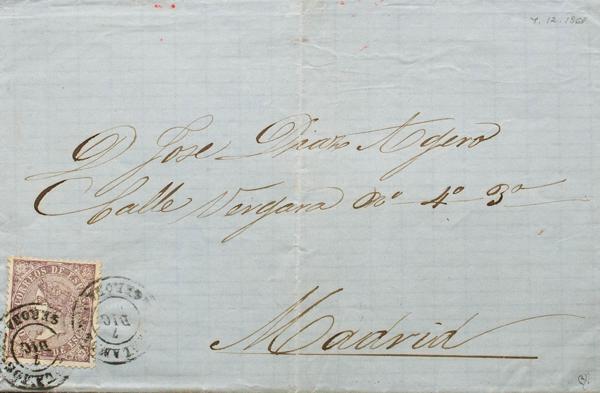 7.12.1868
D. Jose Diaz Agero
Calle Vergara nº 4º 3º
Madrid
CORREOS DE ESPAÑA
7
DIC
7
DIC